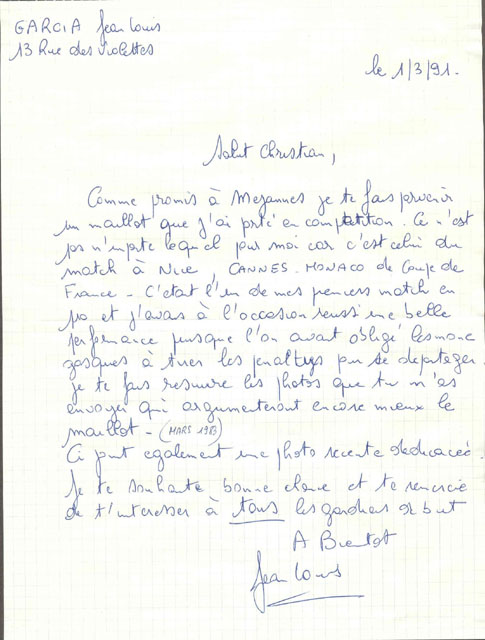 GARCIA Jean Louis
13 Rue des Violettes
le 1/3/91.
Salut Christian,
Comme promis à Mejannes je te fais parvenir
un maillot que j'ai porté en compétition. Ce n'est
pas n'importe lequel pour moi car c'est celui du
match à Nice, CANNES - MONACO de Coupe de
France - C'était l'un de mes premiers match en
pro et j'avais à l'occasion reussi une belle
performance puisque l'on avait obligé les mone
gasques à tirer les penaltys pour se departager.
je te fais resuivre les photos que tu m'as
envoyer qui argumenteront encore mieux le
maillot - (MARS 1983)
Ci joint egalement une photo recente dedicacée.
Je te souhaite bonne chance et te remercie
de t'interesser à tous les gardiens de but
A Bientot
Jean Louis